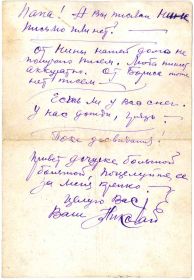 Папа! А Вы писали Нине
письмо или нет? —
От Нины нашей долго не
получаю писем. Люба пишет
аккуратно. От Бориса тоже
нет писем —
Есть ли у Вас снег.
У нас дожди, грязь.
Пока до свиданья!
Привет дочурке большой
большой, поцелуйте ее
за меня крепко.
Целую Вас
Ваш Николай